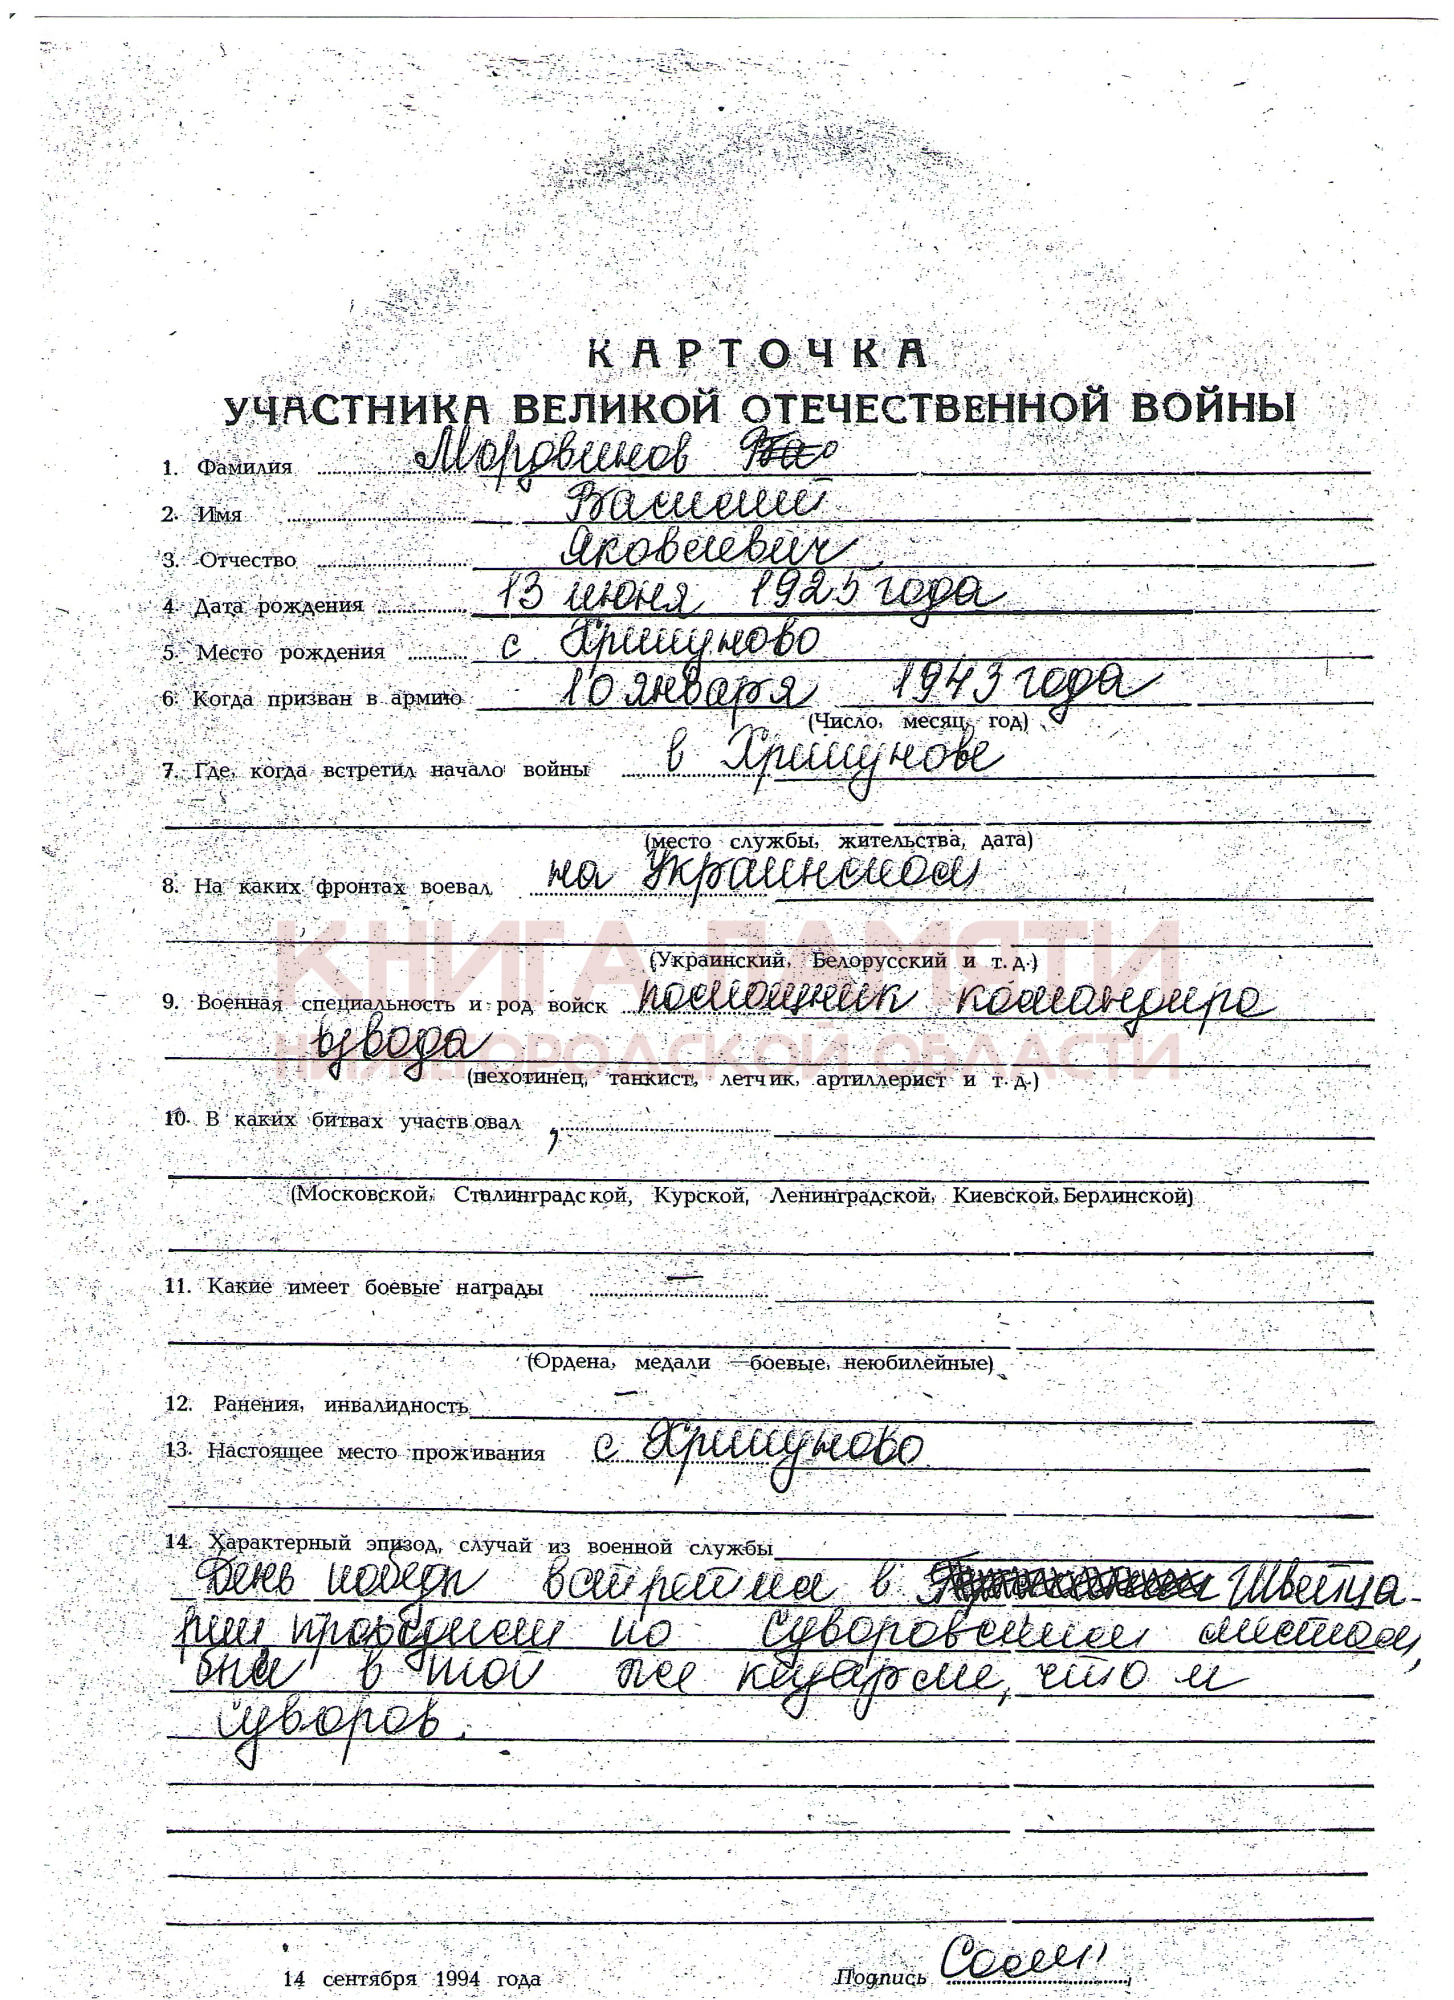 КАРТОЧКА
УЧАСТНИКА ВЕЛИКОЙ ОТЕЧЕСТВЕННОЙ ВОЙНЫ
1. Фамилия Мордвинов
2. Имя Василий
3. Отчество Яковлевич
4. Дата рождения 13 июня 1925 года
5. Место рождения с Хрипуново
6. Когда призван в армию 10 января 1943 года
(Число, месяц, год)
7. Где, когда встретил начало войны в Хрипунове
(место службы, жительства, дата)
8. На каких фронтах воевал на Украинском
КНИГА ПАМЯТИ
(Украинский, Белорусский и т. д.)
9. Военная специальность и род войск помощник командира
взвода
НИЖЕГОРОДСКОЙ ОБЛАСТИ
(пехотинец, танкист, летчик, артиллерист и т. д.)
10. В каких битвах участвовал
(Московской, Сталинградской, Курской, Ленинградской, Киевской, Берлинской)
11. Какие имеет боевые награды —
(Ордена, медали —боевые, неюбилейные)
12. Ранения, инвалидность —
13. Настоящее место проживания с Хрипуново
14. Характерный эпизод, случай из военной службы
День победы встретил в Швейца-
рии проходил по Суворовским местам,
был в той же казарме, что и
Суворов.
14 сентября 1994 года Подпись